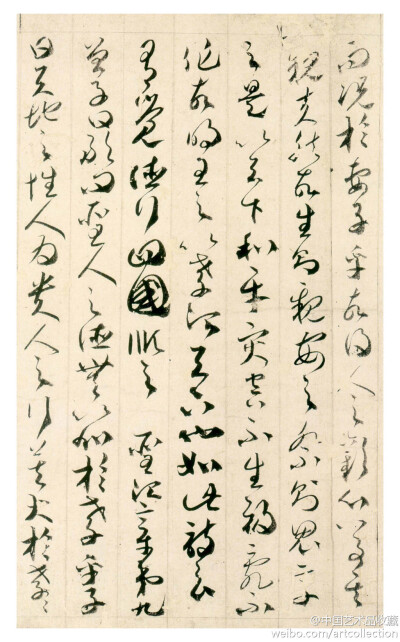 而況於妻子乎故得人之歡心以事其
親夫然故生則親安之祭則鬼享
之是以天下和平災害不生禍亂不
作故明王之以孝治天下也如此詩云
有覺德行四國順之 聖治章第九
曾子曰敢問聖人之德無以加於孝乎子
曰天地之性人為貴人之行莫大於孝〻
@中国艺术品收藏
weibo.com/artcollection